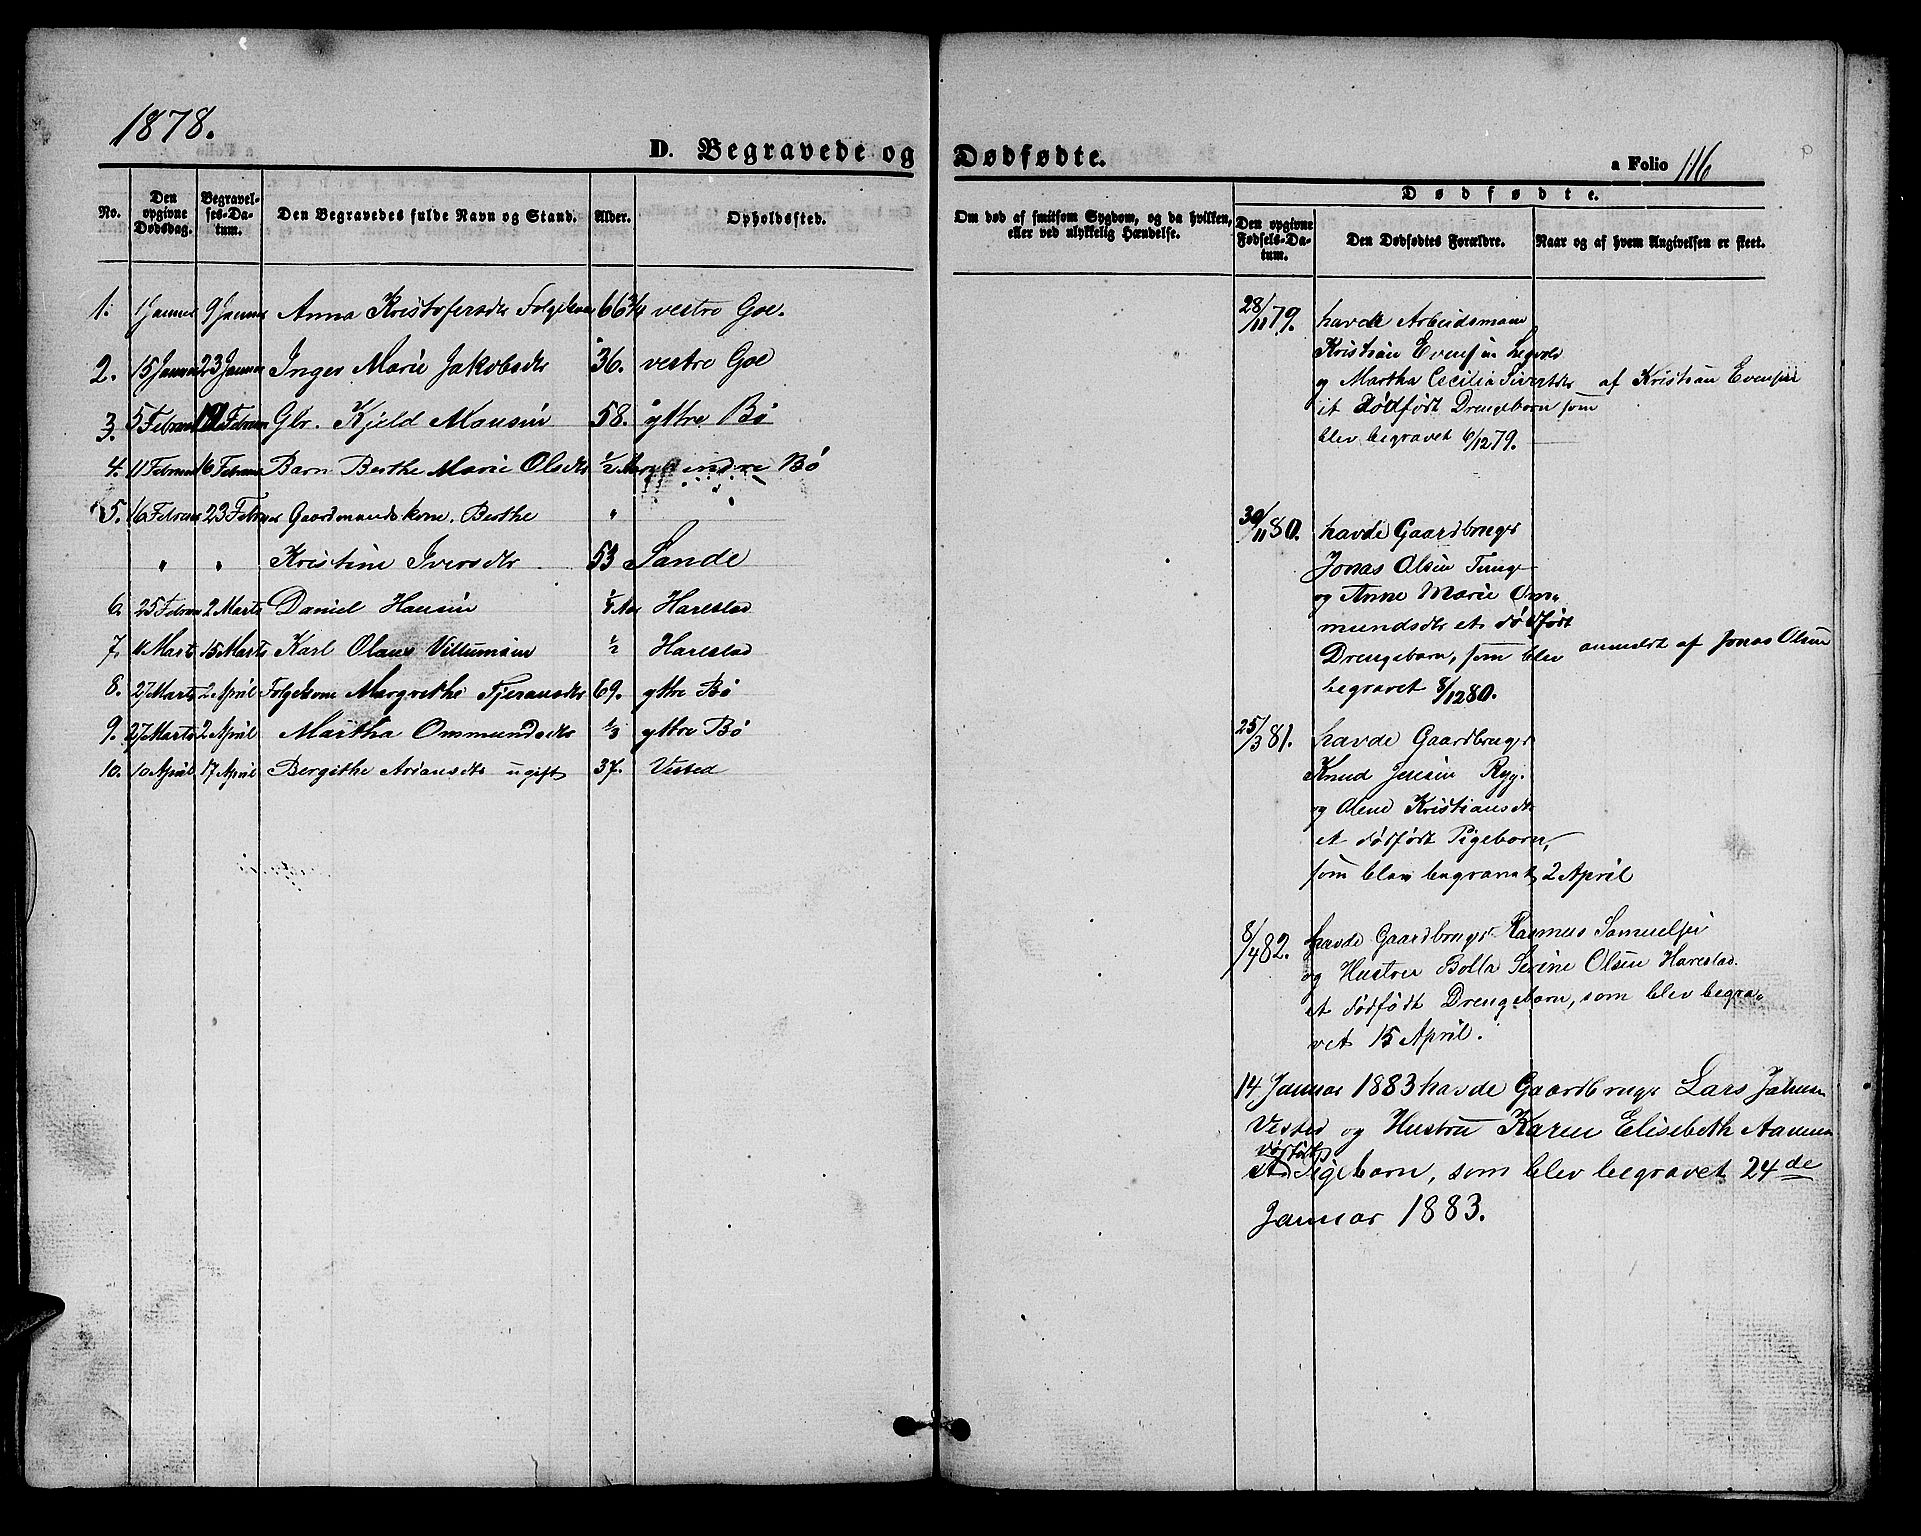 1878.
D. Begravede og Dødfødte.
a Folio 116
No. Den opgivne Dødsdag. Begravelses-Datum. Den Begravedes fulde Navn og Stand. Alder. Opholdssted.
Om død af smitsom Sygdom, og da hvilken, eller ved ulykkelig Hændelse.
Dødfødte.
Den opgivne Fødsels-Datum. Den Dødfødtes Forældre. Naar og af hvem Angivelsen er skeet.
1. 1 Januar 9 Januar Anna Kristofersdtr Folgekone 66 3/4 vestre Goe.
2. 15 Januar 23 Januar Inger Marie Jakobsdtr 36. vestre Goe
3. 5 Februar Februar Gbr. Kjeld Mansin 58. yttre Bø
4. 11 Februar 16 Februar Barn Berthe Marie Olsdtr 1/2 indre Bø
5. 16 Februar 23 Februar Gaardmandskone. Berthe "
" " Kristine Iversdtr 53 Sande
6. 25 Februar 2 Marts Daniel Hansin 1/4 Aar Harestad
7. Marts 15 Marts Karl Olaus Villumsin 1/2 Harestad
8. 27 Marts 2 April Folgekone Margrethe Tjeransdtr 69. yttre Bø
9. 27 Marts 2 April Martha Ommundsdtr 1/3 yttre Bø
10. 10 April 17 April Bergithe Ariansdtr ugift 37. Vested
28/11 79. havde Arbeidsmann
Kristian Evensin
og Martha Cecilia Sivertsdtr af Kristian Evensen
it Dødfødt Drengebarn som
blev begravet 6/12 79.
30/11 80. havde Gaardbruger
Jonas Olsin Tunge
og Anne Marie Om-
mundsdtr et dødfødt
Drengebarn, som blev anmeldt af Jonas Olsen
begravet 8/12 80.
25/3 81. havde Gaardbruger
Knud Jensin Ryg.
og Olene Kristiansdtr
et dødfødt Pigebarn,
som blev begravet 2 April
8/4 82. havde Gaardbruger Rasmus Samuelsen
og Hustru Bolla Serine Olsen Harestad.
et dødfødt Drengebarn, som blev begra-
vet 15 April.
14 Januar 1883 havde Gaardbruger Lars Johnsen
Vested og Hustru Karen Elisebeth
dødfødt
et Pigebarn, som blev begravet 24de
Januar 1883.